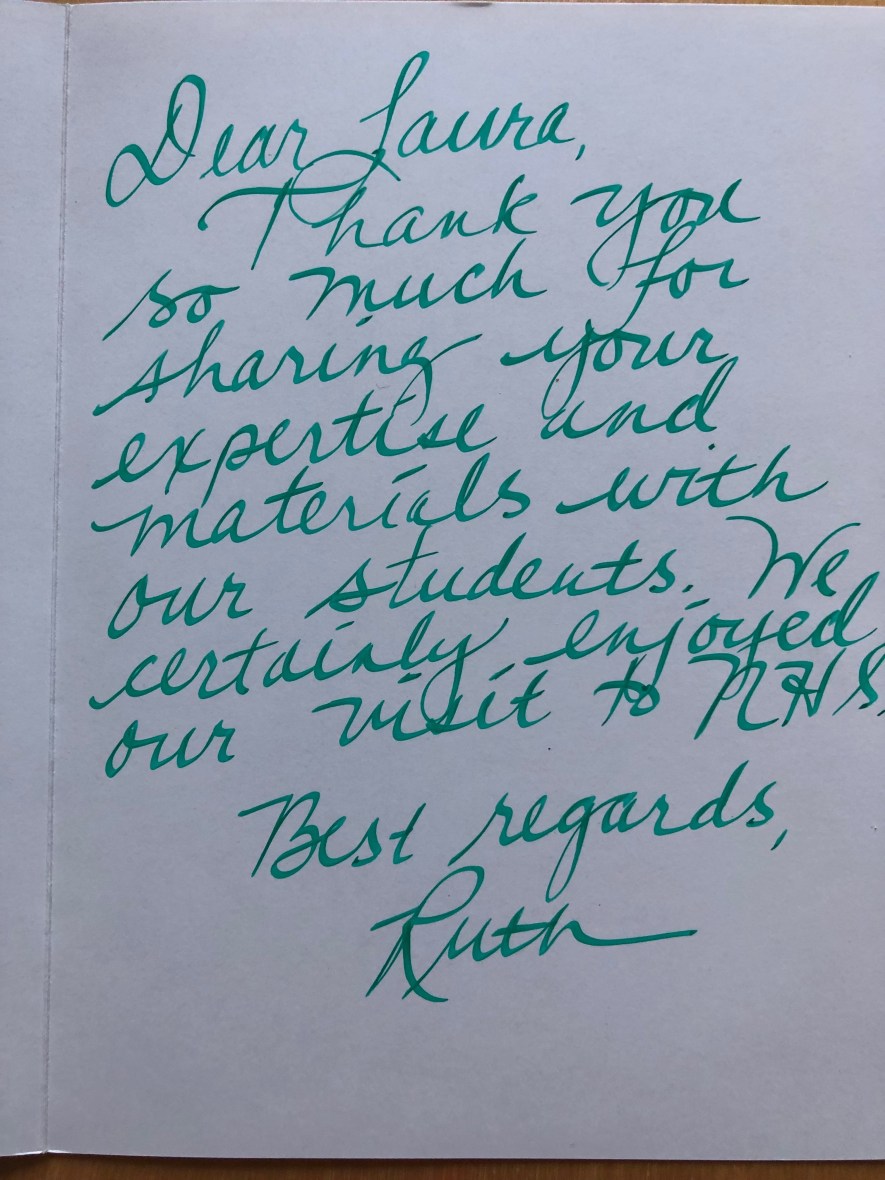 Dear Laura,
Thank you
so much for
sharing your
expertise and
materials with
our students. We
certainly enjoyed
our visit to NHS.
Best regards,
Ruth